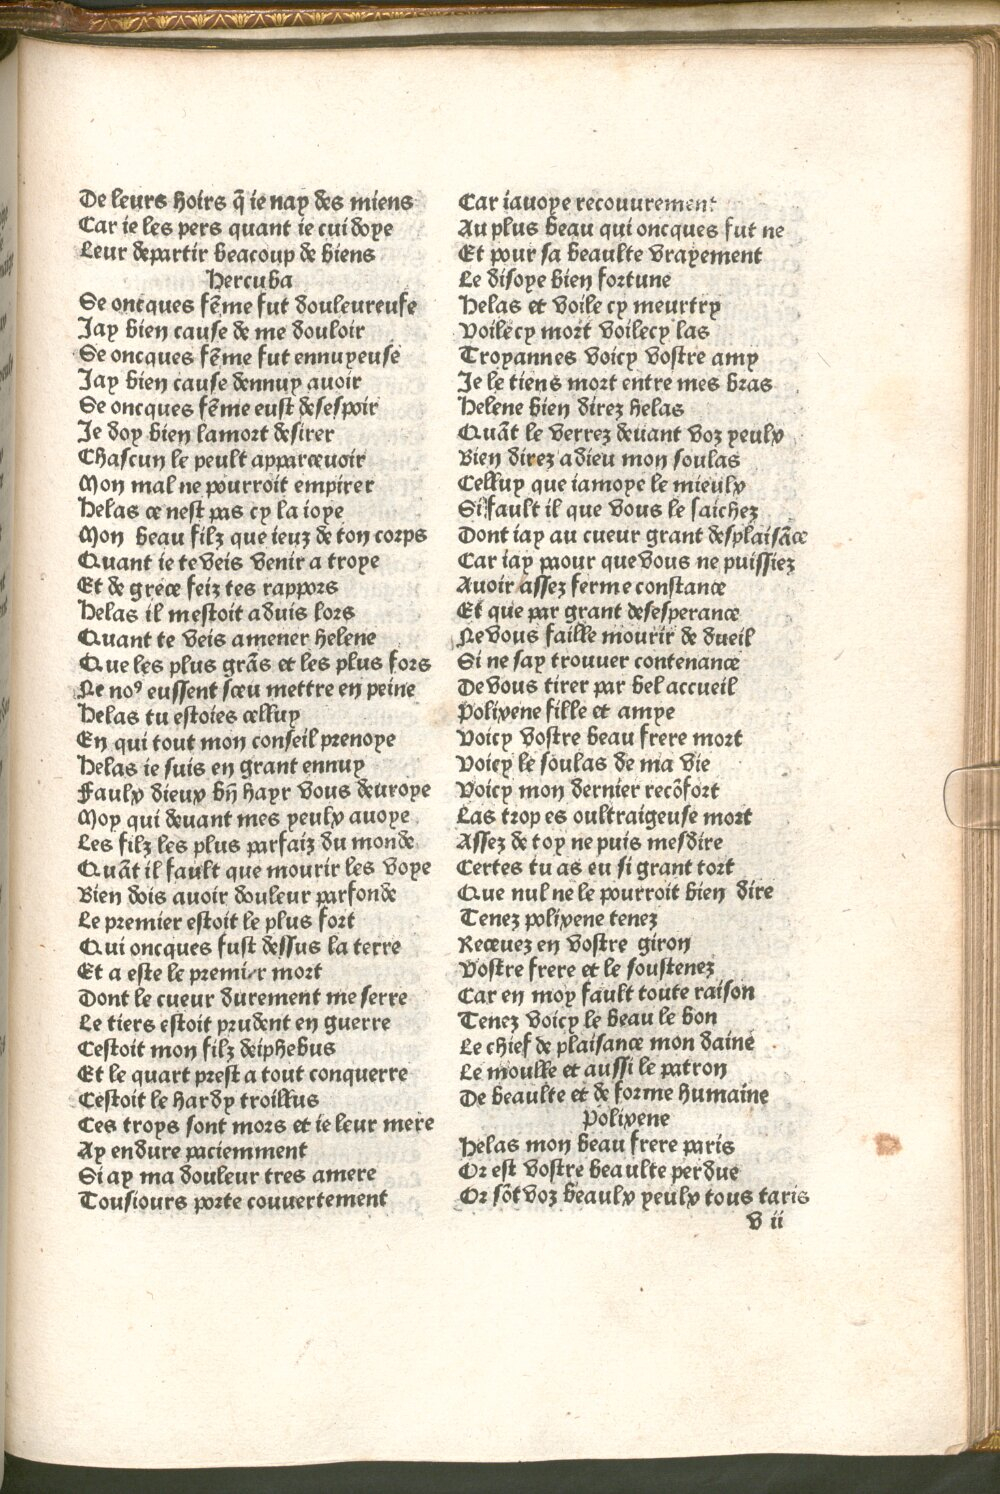 De leurs hoirs q̃ ie nay des miens
Car ie les pers quant ie cuidoye
Leur departir beacoup de biens
Hercuba
Se oncques fẽme fut douleureuse
Iay bien cause de me douloir
Se oncques fẽme fut ennuyeuse
Iay bien cause dennuy auoir
Se oncques fẽme eust desespoir
Ie doy bien lamort desirer
Chascun le peult apparceuoir
Mon mal ne pourroit empirer
Helas ce nest pas cy la ioye
Mon beau filz que ieuz de ton corps
Quant ie te veis venir a troye
Et de grece feiz tes rappors
Helas il mestoit aduis lors
Quant te veis amener helene
Que les plus grãs et les plus fors
Ne noꝰ eussent sceu mettre en peine
Helas tu estoies celluy
En qui tout mon conseil prenoye
Helas ie suis en grant ennuy
Faulx dieux bñ hayr vous deuroye
Moy qui deuant mes yeulx auoye
Les filz les plus parfaiz du monde
Quãt il fault que mourir les voye
Bien dois auoir douleur parfonde
Le premier estoit le plus fort
Qui oncques fust dessus la terre
Et a este le premier mort
Dont le cueur durement me serre
Le tiers estoit prudent en guerre
Cestoit mon filz deiphebus
Et le quart prest a tout conquerre
Cestoit le hardy troillus
Ces troys sont mors et ie leur mere
Ay endure paciemment
Si ay ma douleur tres amere
Tousiours porte couuertement
Car iauoye recouurement
Au plus beau qui oncques fut ne
Et pour sa beaulte vrayement
Le disoye bien fortune
Helas et voile cy meurtry
Voilecy mort voilecy las
Troyannes voicy vostre amy
Ie le tiens mort entre mes bras
Helene bien direz helas
Quãt le verrez deuant voz yeulx
Bien direz adieu mon soulas
Celluy que iamoye le mieulx
Si fault il que vous le saichez
Dont iay au cueur grant desplaisãce
Car iay paour que vous ne puissiez
Auoir assez ferme constance
Et que par grant desesperance
Ne vous faille mourir de dueil
Si ne say trouuer contenance
De vous tirer par bel accueil
Polixene fille et amye
Voicy vostre beau frere mort
Voicy le soulas de ma vie
Voicy mon dernier recõfort
Las trop es oultraigeuse mort
Assez de toy ne puis mesdire
Certes tu as eu si grant tort
Que nul ne le pourroit bien dire
Tenez polixene tenez
Receuez en vostre giron
Vostre frere et le soustenez
Car en moy fault toute raison
Tenez voicy le beau le bon
Le chief de plaisance mon daine
Le moulle et aussi le patron
De beaulte et de forme humaine
Polixene
Helas mon beau frere paris
Or est vostre beaulte perdue
Or sõt voz beaulx yeulx tous taris
v ii